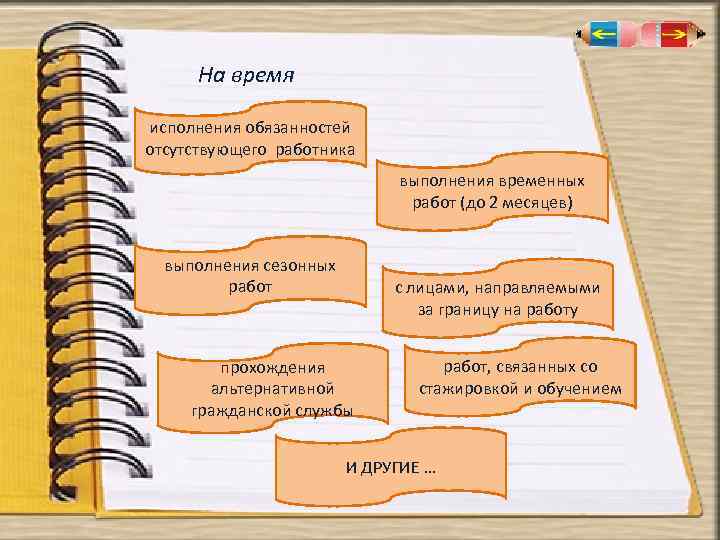 На время
исполнения обязанностей
отсутствующего работника
выполнения временных
работ (до 2 месяцев)
выполнения сезонных
работ
с лицами, направляемыми
за границу на работу
прохождения
альтернативной
гражданской службы
работ, связанных со
стажировкой и обучением
И ДРУГИЕ ...